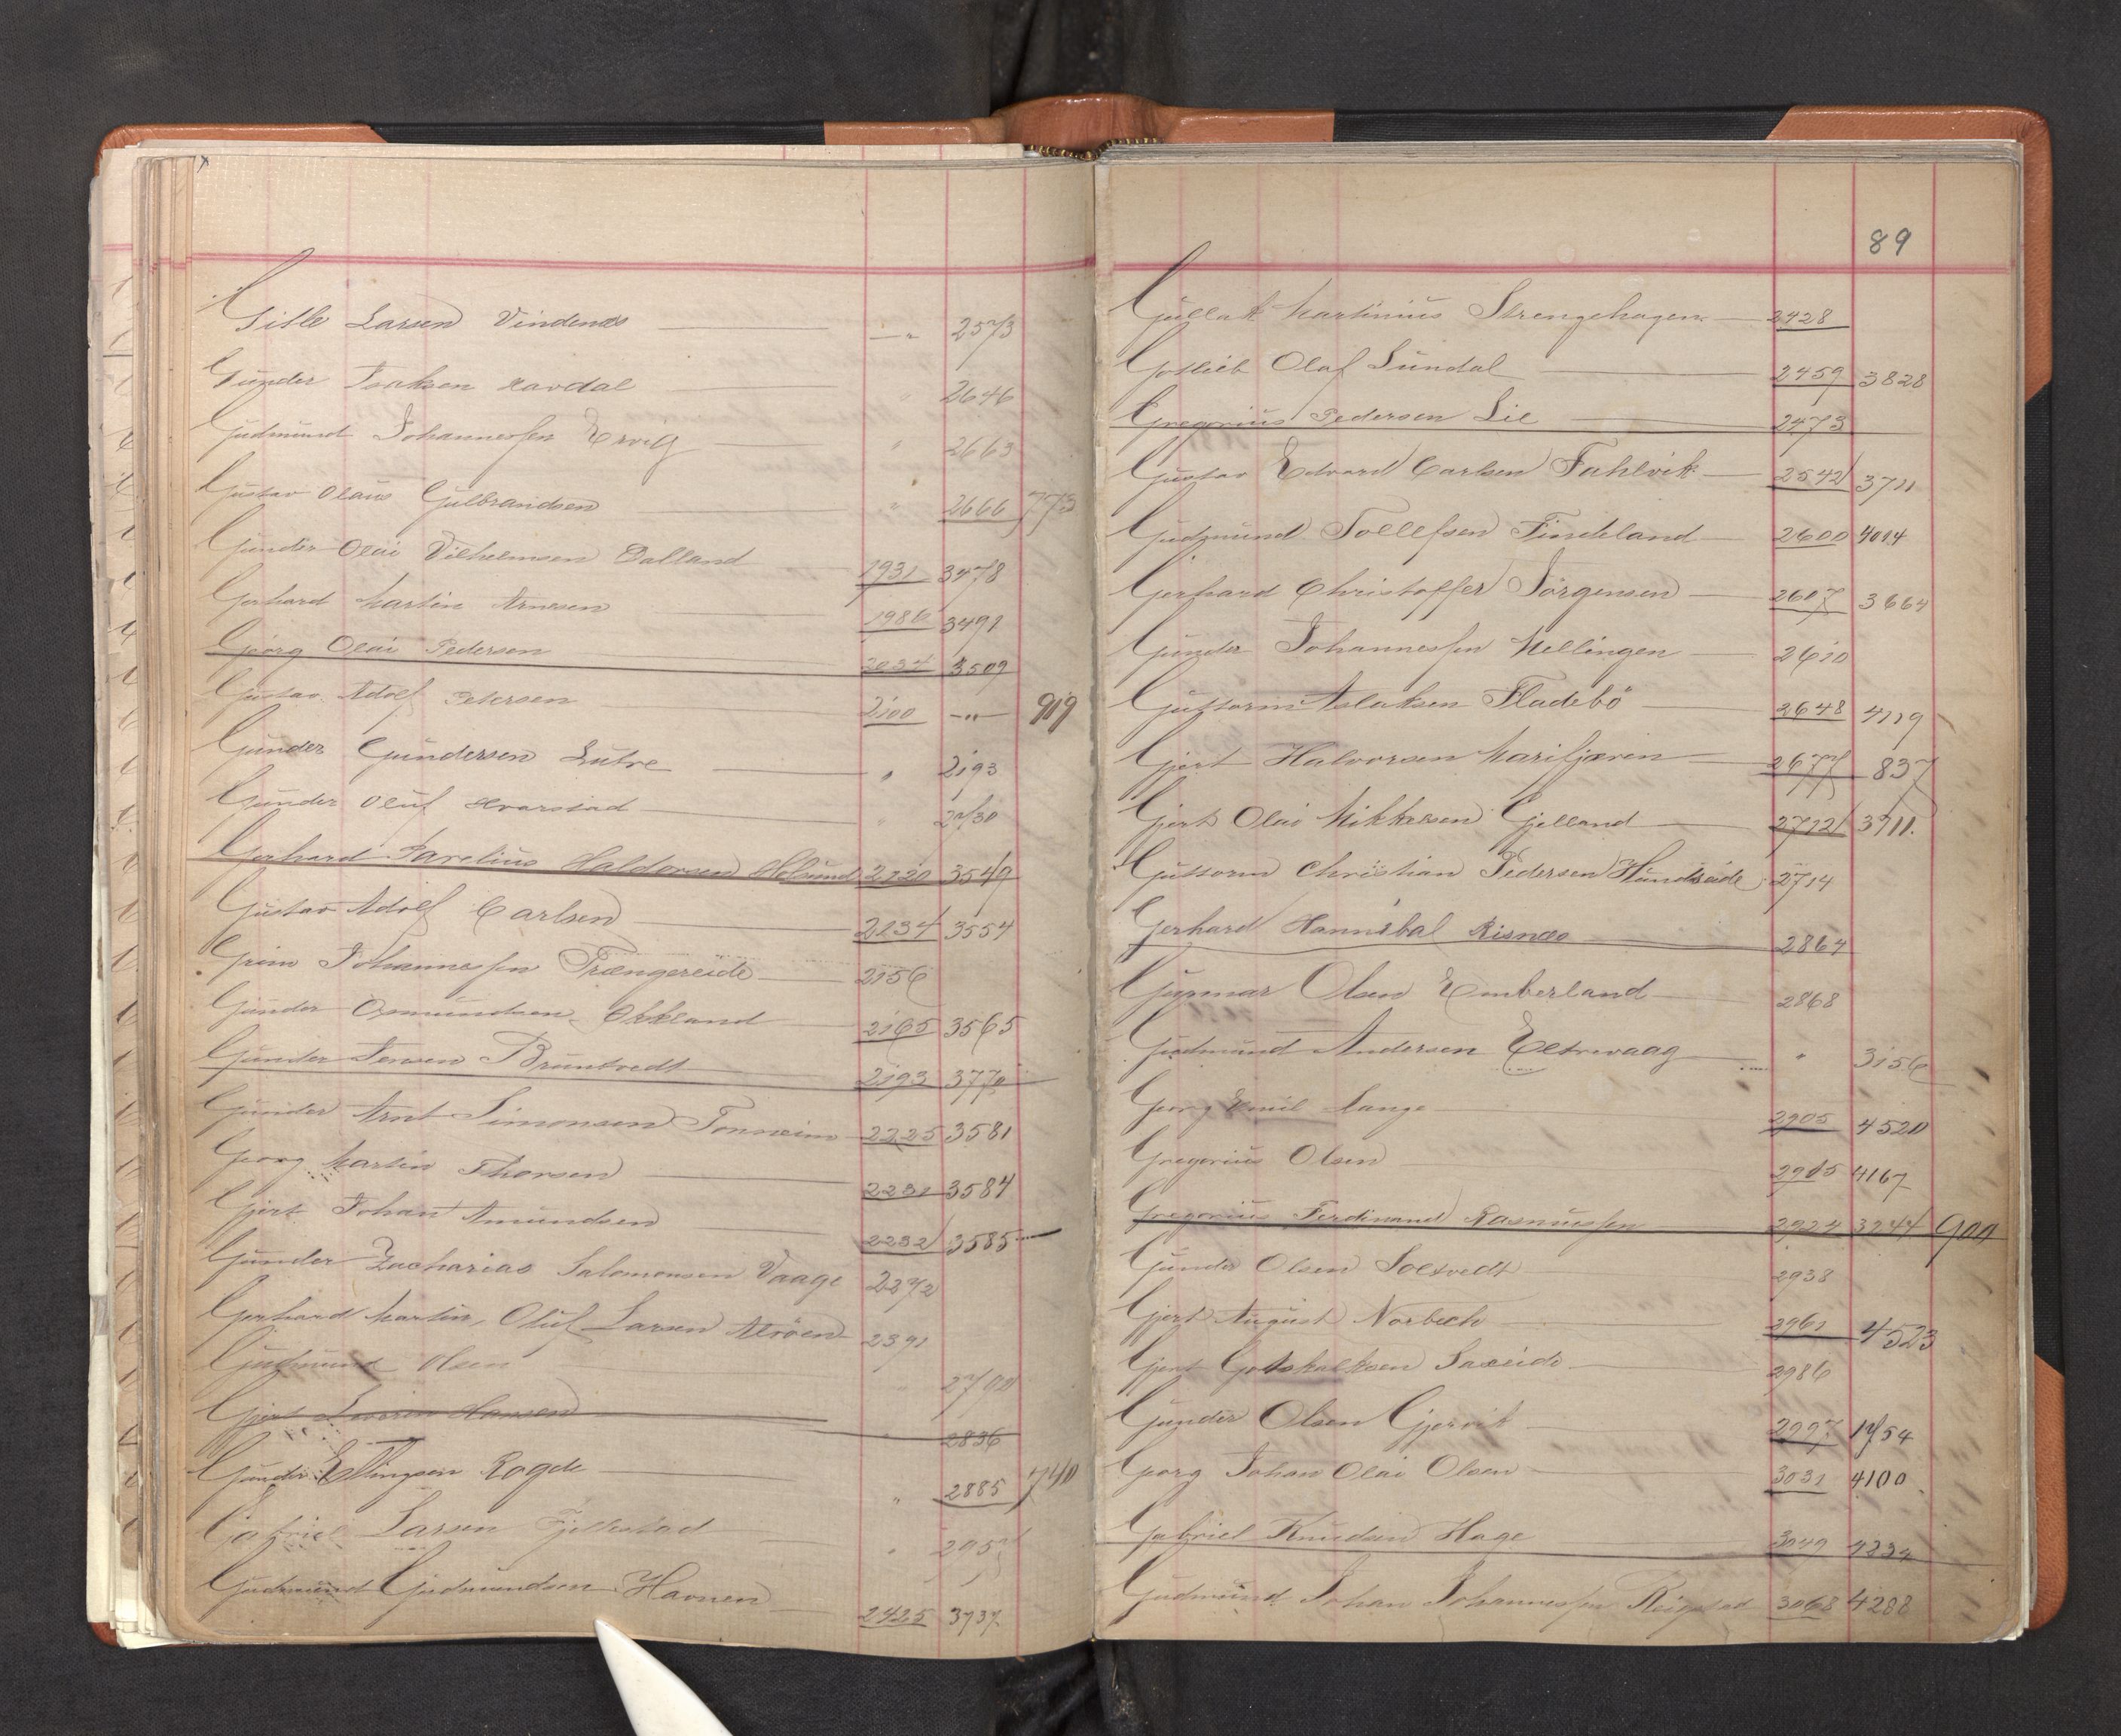 Gitle Larsen Vindenes — „ 2573
Gunder Isaksen Ravdal „ 2646
Gudmund Johannessen Ervig „ 2663
Gustav Olaus Gulbrandsen „ 2666 773
Gunder Olai Vilhelmsen Dalland 1931 3478
Gerhard Martin Arnesen 1986 3491
Georg Olai Pedersen 2034 3509
Gustav Adolf Petersen 2100 — „ — 919
Gunder Gundersen Lutre „ 2193
Gunder Oluf Hvarstad „ 2730
Gerhard Parelius Haldorsen 2120 3549
Gustav Adolf Carlsen 2134 3554
Grim Johannessen Trængereide 2156
Gunder Osmundsen Økland 2165 3565
Gunder Jensen Bruntvedt 2193 3770
Gunder Arnt Simonsen Tonheim 2225 3581
Georg Martin Thorsen 2231 3584
Gjert Johan Amundsen 2232 3585
Gunder Zacharias Salomonsen Vaage 2272
Gerhard Martin Oluf Larsen Alvöen 2391
Gudmund Olsen
Gjert Severin Hansen „ 2836
Gunder Ellingsen Rogde „ 2885 740
Gabriel Larsen Gjellestad „ 2957
Gudmund Gudmundsen Havnen 2425 3737
89
Gullak Martinius Strengehagen 2428
Gotlieb Olaf Sundal 2459 3828
Gregorius Pedersen Lie 2473
Gustav Edvard Carlsen Fahlvik 2542 3711
Gudmund Tollefsen Findeland 2600 4014
Gerhard Christoffer Jörgensen 2607 3664
Gunder Johannessen Mellingen 2610
Guttorm Aslaksen Fladebö 2648 4119
Gjert Halvorsen Marifjæren 2677 837
Gjert Olai Mikkelsen Gjelland 2712 3711.
Guttorm Christian Pedersen Hundseide 2714
Gerhard Hannibal Risnes 2864
Gunnar Olsen Emberland 2868
Gudmund Andersen Eltrevaag „ 3156
Georg Emil Lange 2905 4520
Gregorius Olsen 2915 4167
Gregorius Ferdinand Rasmussen 2924 3244 900
Gunder Olsen Soltvedt 2938
Gjert August Norbech 2961 4523
Gjert Gotskalksen Saxeide 2986
Gunder Olsen Gjervik 2997 1754
Georg Johan Olai Olsen 3031 4100
Gabriel Knudsen Hage 3049 4234
Gudmund Johan Johannessen Reigstad 3068 4288